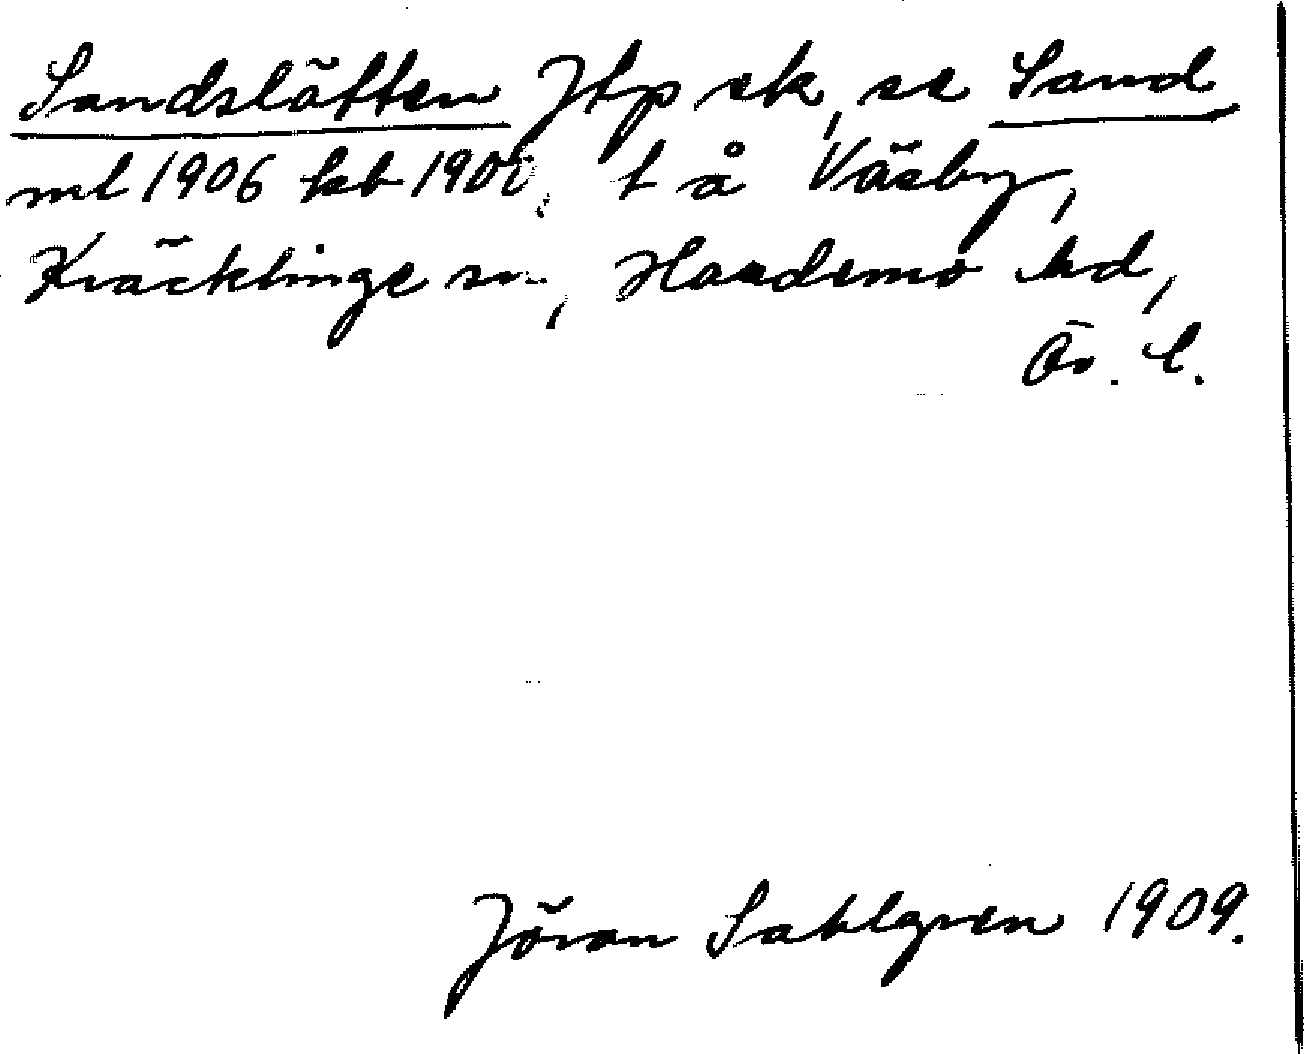 Sandslätten Jtp sk, se Sand
ml 1906 hb 1900, t å Väsby,
Kräcklinge sn, Hardemo hd,
Ör. l.
Jöran Sahlgren 1909.